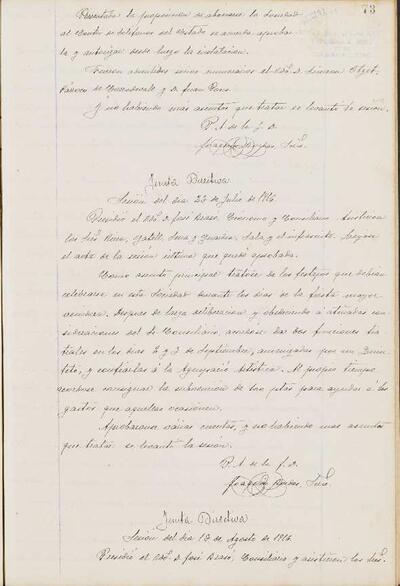 73
Presentada la proposición de abonarse la Sociedad
al Centro de teléfonos del Estado se acuerda aprobar-
la y autorizar desde luego la instalación.
Fueron admitidos socios numerarios el Rdo. D.
Párroco de y D. Juan
Y no habiendo más asuntos que tratar se levanta la sesión.
P. A. de la J. D.
Joaquín Srio.
Junta Directiva
Sesión del dia 26 de Julio de 1916.
Presidió el Rdo. D. José Brasó, Ecónomo y Consiliario. Asistieron
los Sres. Riera, Batell, Serra y Sala y el infrascrito. Leyose
el acta de la sesión última que quedó aprobada.
Como asunto principal tratóse de los festejos que debían
celebrarse en esta Sociedad durante los dias de la fiesta mayor
venidera. Despues de larga deliberacion y obedeciendo á atinadas con-
sideraciones del Sr. Consiliario, acordóse dar dos funciones tea-
trales en los dias 2 y 3 de Septiembre, amenizadas por un Quin-
teto, y confiarlas á la Agrupació Artistica. Al propio tiempo
acordose consignar la subvencion de ptas para ayudar á los
gastos que aquellas ocasionen.
Aprobaronse varias cuentas, y no habiendo mas asuntos
que tratar se levantó la sesión.
P. A. de la J. D.
Joaquín Srio.
Junta Directiva
Sesión del dia 18 de Agosto de 1916.
Presidió el Rdo. D. José Brasó, Consiliario y asistieron los Sres.